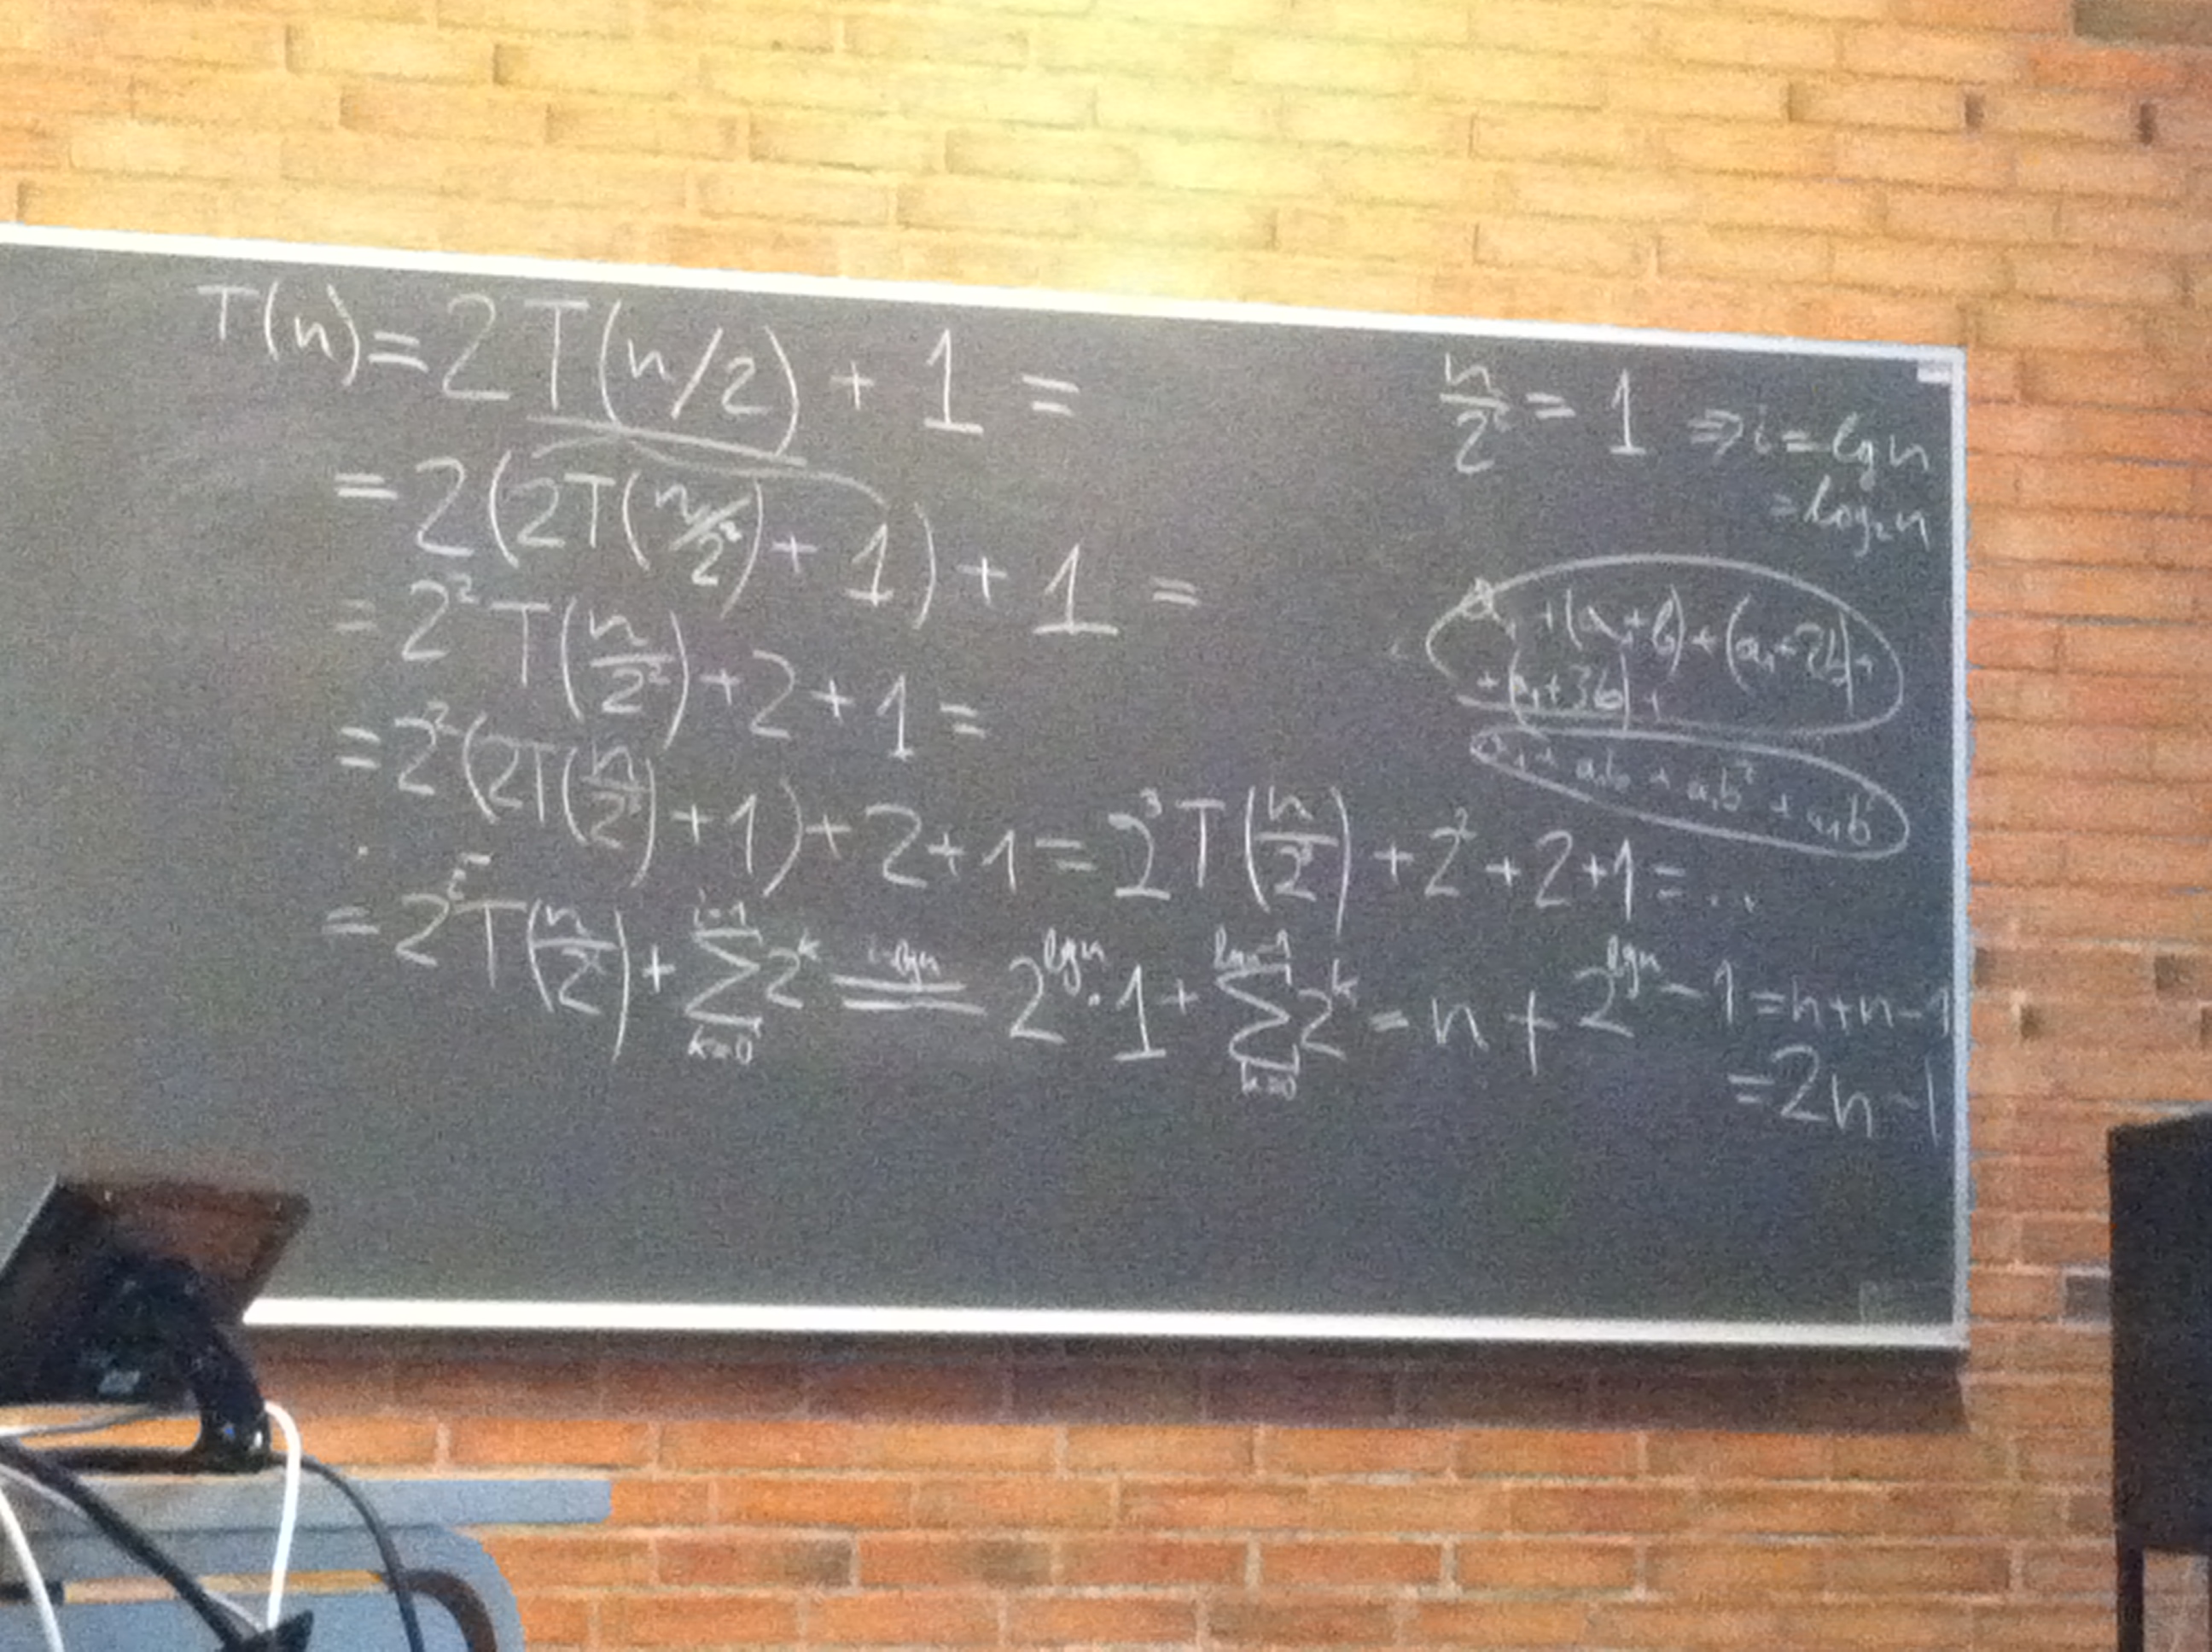 T(n) = 2T(n/2) + 1 =
= 2(2T(n/2²) + 1) + 1 =
= 2²T(n/2²) + 2 + 1 =
= 2²(2T(n/2³) + 1) + 2 + 1 = 2³T(n/2³) + 2² + 2 + 1 = ...
= 2ⁱT(n/2ⁱ) + ∑_{k=0}^{i-1} 2ᵏ =^{i=lgn} 2^{lgn} · 1 + ∑_{k=0}^{lgn-1} 2ᵏ = n + 2^{lgn} - 1 = n + n - 1
= 2n - 1
n/2ⁱ = 1 ⇒ i = lgn
= log₂n
+ (a₁+b) + (a₁+2b) +
+ (a₁+3b) +
a₁ + a₁b + a₁b² + a₁b³